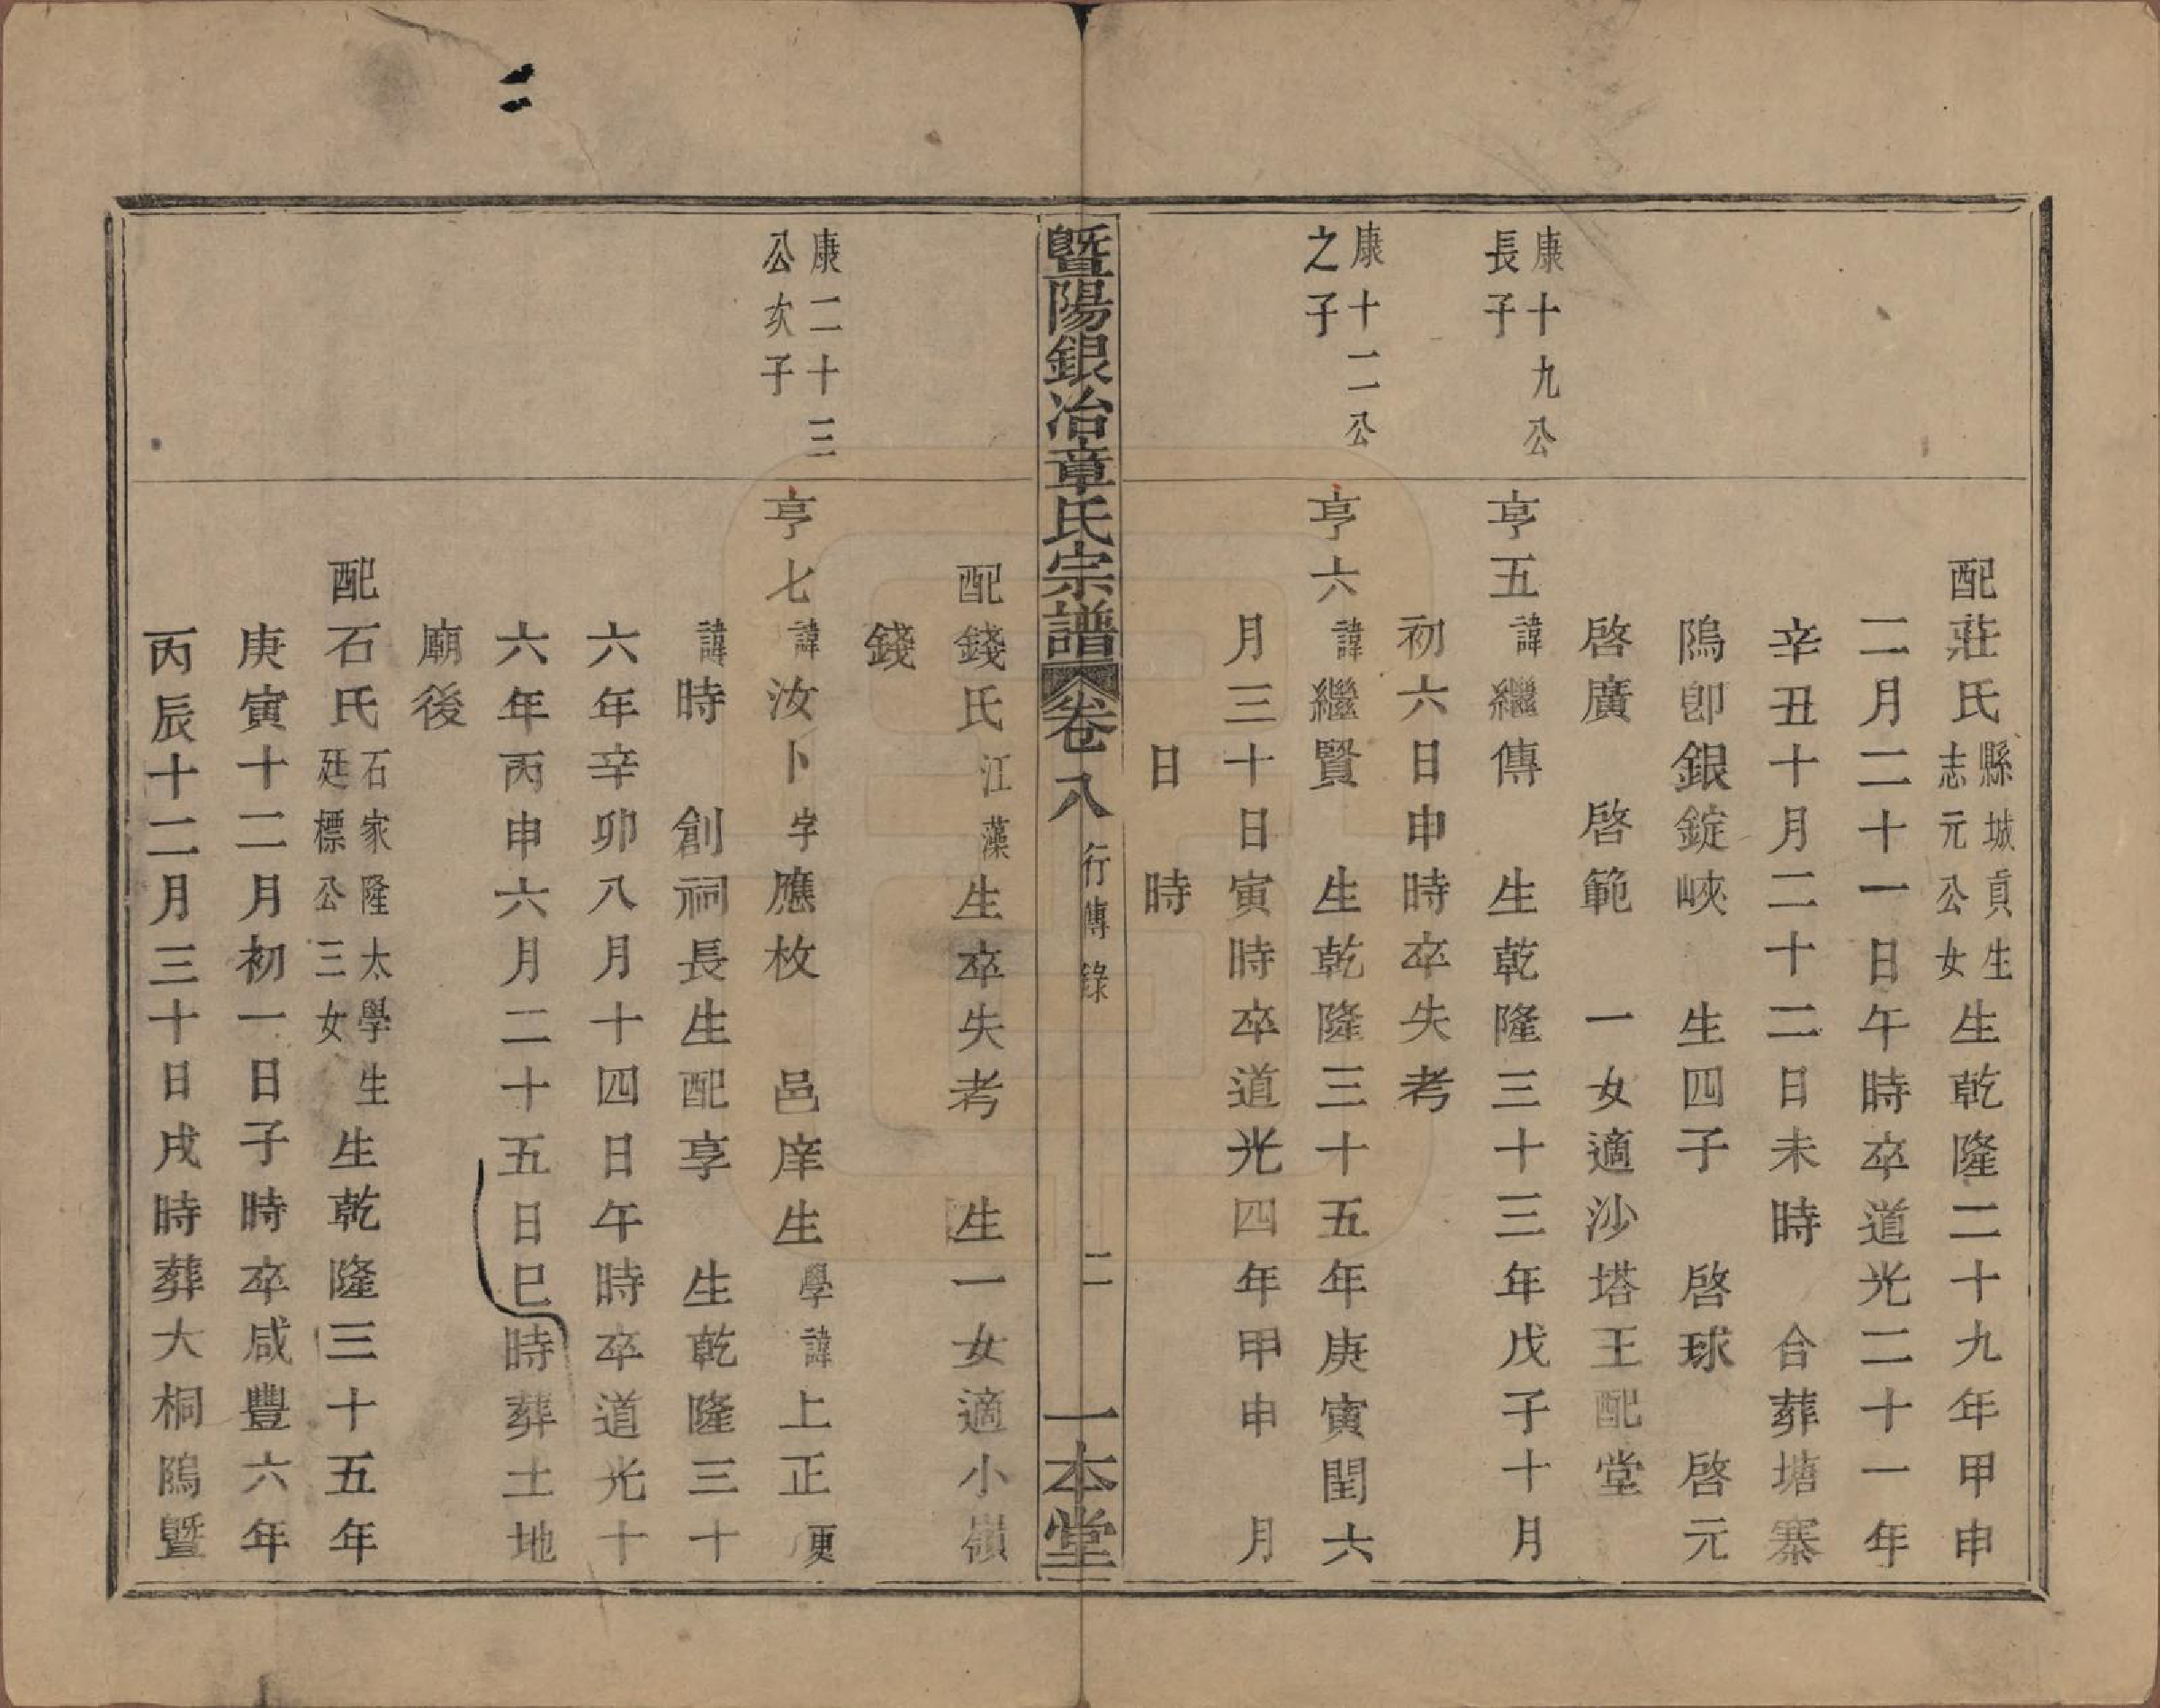 配莊氏縣城貢生志元公女生乾隆二十九年甲申
二月二十一日午時卒道光二十一年
辛丑十月二十二日未時　合葬塘寨
隝卽銀錠峽　生四子　啓球　啓元
啓廣　啓範　一女適沙塔王配堂
康十九公長子
亨五諱繼傳　生乾隆三十三年戊子十月
初六日申時卒失考
康十二公之子
亨六諱繼賢　生乾隆三十五年庚寅閏六
月三十日寅時卒道光四年甲申　月
日　時
暨陽銀冶章氏宗譜　卷八　行傳錄　二　一本堂
配錢氏江藻生卒失考　生一女適小嶺
錢
康二十三公次子
亨七諱汝卜字應枚　邑庠生學諱上正更
諱時　創祠長生配享　生乾隆三十
六年辛卯八月十四日午時卒道光十
六年丙申六月二十五日巳時葬土地
廟後
配石氏石家隆太學生廷標公三女生乾隆三十五年
庚寅十二月初一日子時卒咸豐六年
丙辰十二月三十日戌時葬大桐隝暨